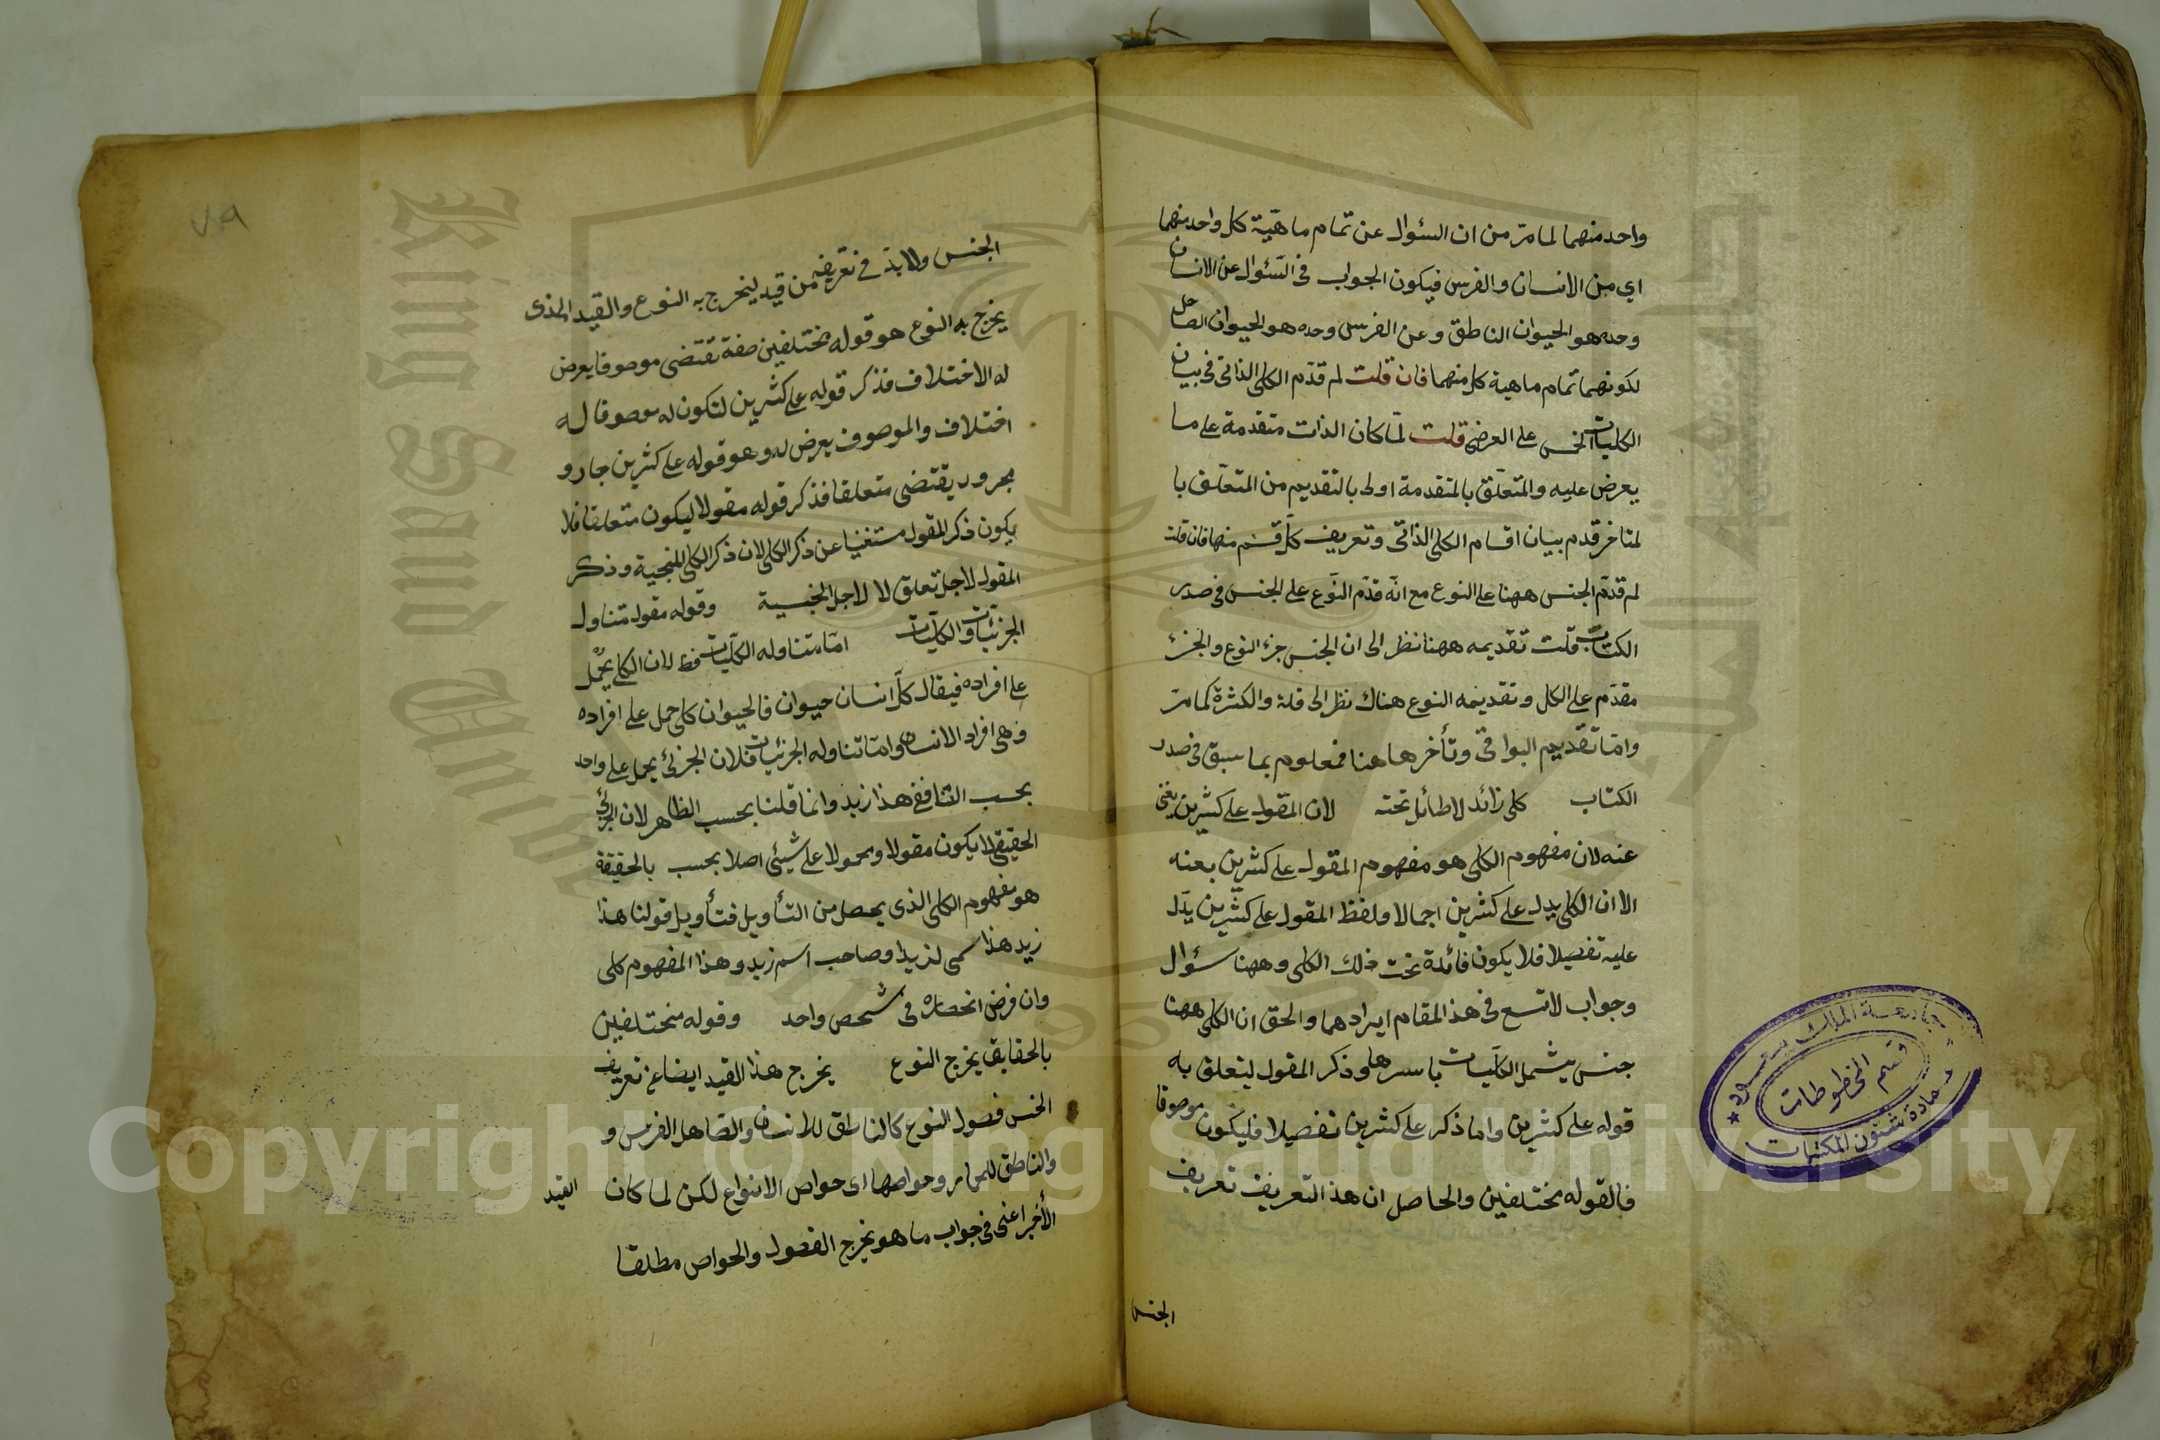 واحد منهما لما مرّ من ان السئوال عن تمام ماهيّة كل واحد منهما
اي من الانسان والفرس فيكون الجواب في السّئوال عن الانسان
وحده هو الحيوان الناطق وعن الفرس وحده هو الحيوان الصاهل
لكونهما تمام ماهية كل منهما فان قلت لم قدّم الكلى الذاتى في بيان
الكليات الخمس على العرضى قلت لمّا كان الذات متقدمة على ما
يعرض عليه والمتعلّق بالمتقدمة اولى بالتقديم من المتعلّق با
لمتاخر قدم بيان اقسام الكلى الذاتى وتعريف كلّ قسم منها فان قلت
لم قدّم الجنس ههنا على النوع مع انّه قدّم النّوع على الجنس في صدر
الكتاب قلت تقديمه ههنا نظر الى ان الجنس جزء النوع والجزء
مقدّم على الكل وتقديمه النوع هناك نظر الى قلة والكثرة كما مرّ
وامّا تقديم البواقى وتأخرها هنا فمعلوم بما سبق في صدر
الكتاب كلى زائد لا طائل تحته لان المقول على كثيرين يغنى
عنه لان مفهوم الكلى هو مفهوم المقول على كثيرين بعنه
الا ان الكلى يدل على كثيرين اجمالا ولفظ المقول على كثيرين يدّل
عليه تفصيلا فلا يكون فائدة تحت ذلك الكلى وههنا سئوال
وجواب لا تسع في هذ المقام ايرادهما والحق ان الكلى ههنا
جنس يشمل الكلّيات باسرها وذكر المقول ليتعلق به
قوله على كثيرين واما ذكر على كثيرين تفصيلا فليكون موصوفا
فالقوله مختلفين والحاصل ان هذ التعريف تعريف
الجنس
٧٩
الجنس ولا بدّ في تعريفه من قيد ليخرج به النوع والقيد الذى
يخرج به النوع هو قوله مختلفين صفة تقتضى موصوفا يعرض
له الاختلاف فذكر قوله على كثيرين لتكون له موصوفا له
اختلاف والموصوف يعرض له وهو قوله على كثيرين جار و
مجرور يقتضى متعلقا فذكر قوله مقولا ليكون متعلقا فلا
يكون ذكر المقول مستغنيا عن ذكر الكلى لان ذكر الكلى للجنسية وذكر
المقول لاجل تعلق لا لاجل الجنسية وقوله مقول متناول
الجزئيات والكلّيات امّا متناوله الكلّيات فظ لان الكلى يحمل
على افراده فيقال كلّ انسان حيوان فالحيوان كلى حمل على افراده
وهى افراد الانسان وامّا تناوله الجزئيات فلان الجزئى يحمل على واحد
بحسب الظاهر هذا زيد وانما قلنا بحسب الظاهر لان الجزئى
الحقيقى لا يكون مقولا ومحمولا على شيئى اصلا بحسب بالحقيقة
هو مفهوم الكلى الذى يحصل من التأويل فتأويل قولنا هذا
زيد هذا مسمى لزيد او صاحب اسم زيد وهذا المفهوم كلى
وان فرض انحصاره في شخص واحد وقوله مختلفين
بالحقايق يخرج النوع يخرج هذا القيد ايضا عن تعريف
الجنس فصول النوع كالناطق للانسان والصّاهل الفرس و
والناطق للحمار وخواصها اى خواص الانواع لكن لما كان القيد
الأخير اعنى في جواب ما هو يخرج الفصول والخواص مطلقا
جامعة الملك سعود
قسم المخطوطات
عمادة شئون المكتبات
King Saud University
Copyright © King Saud University